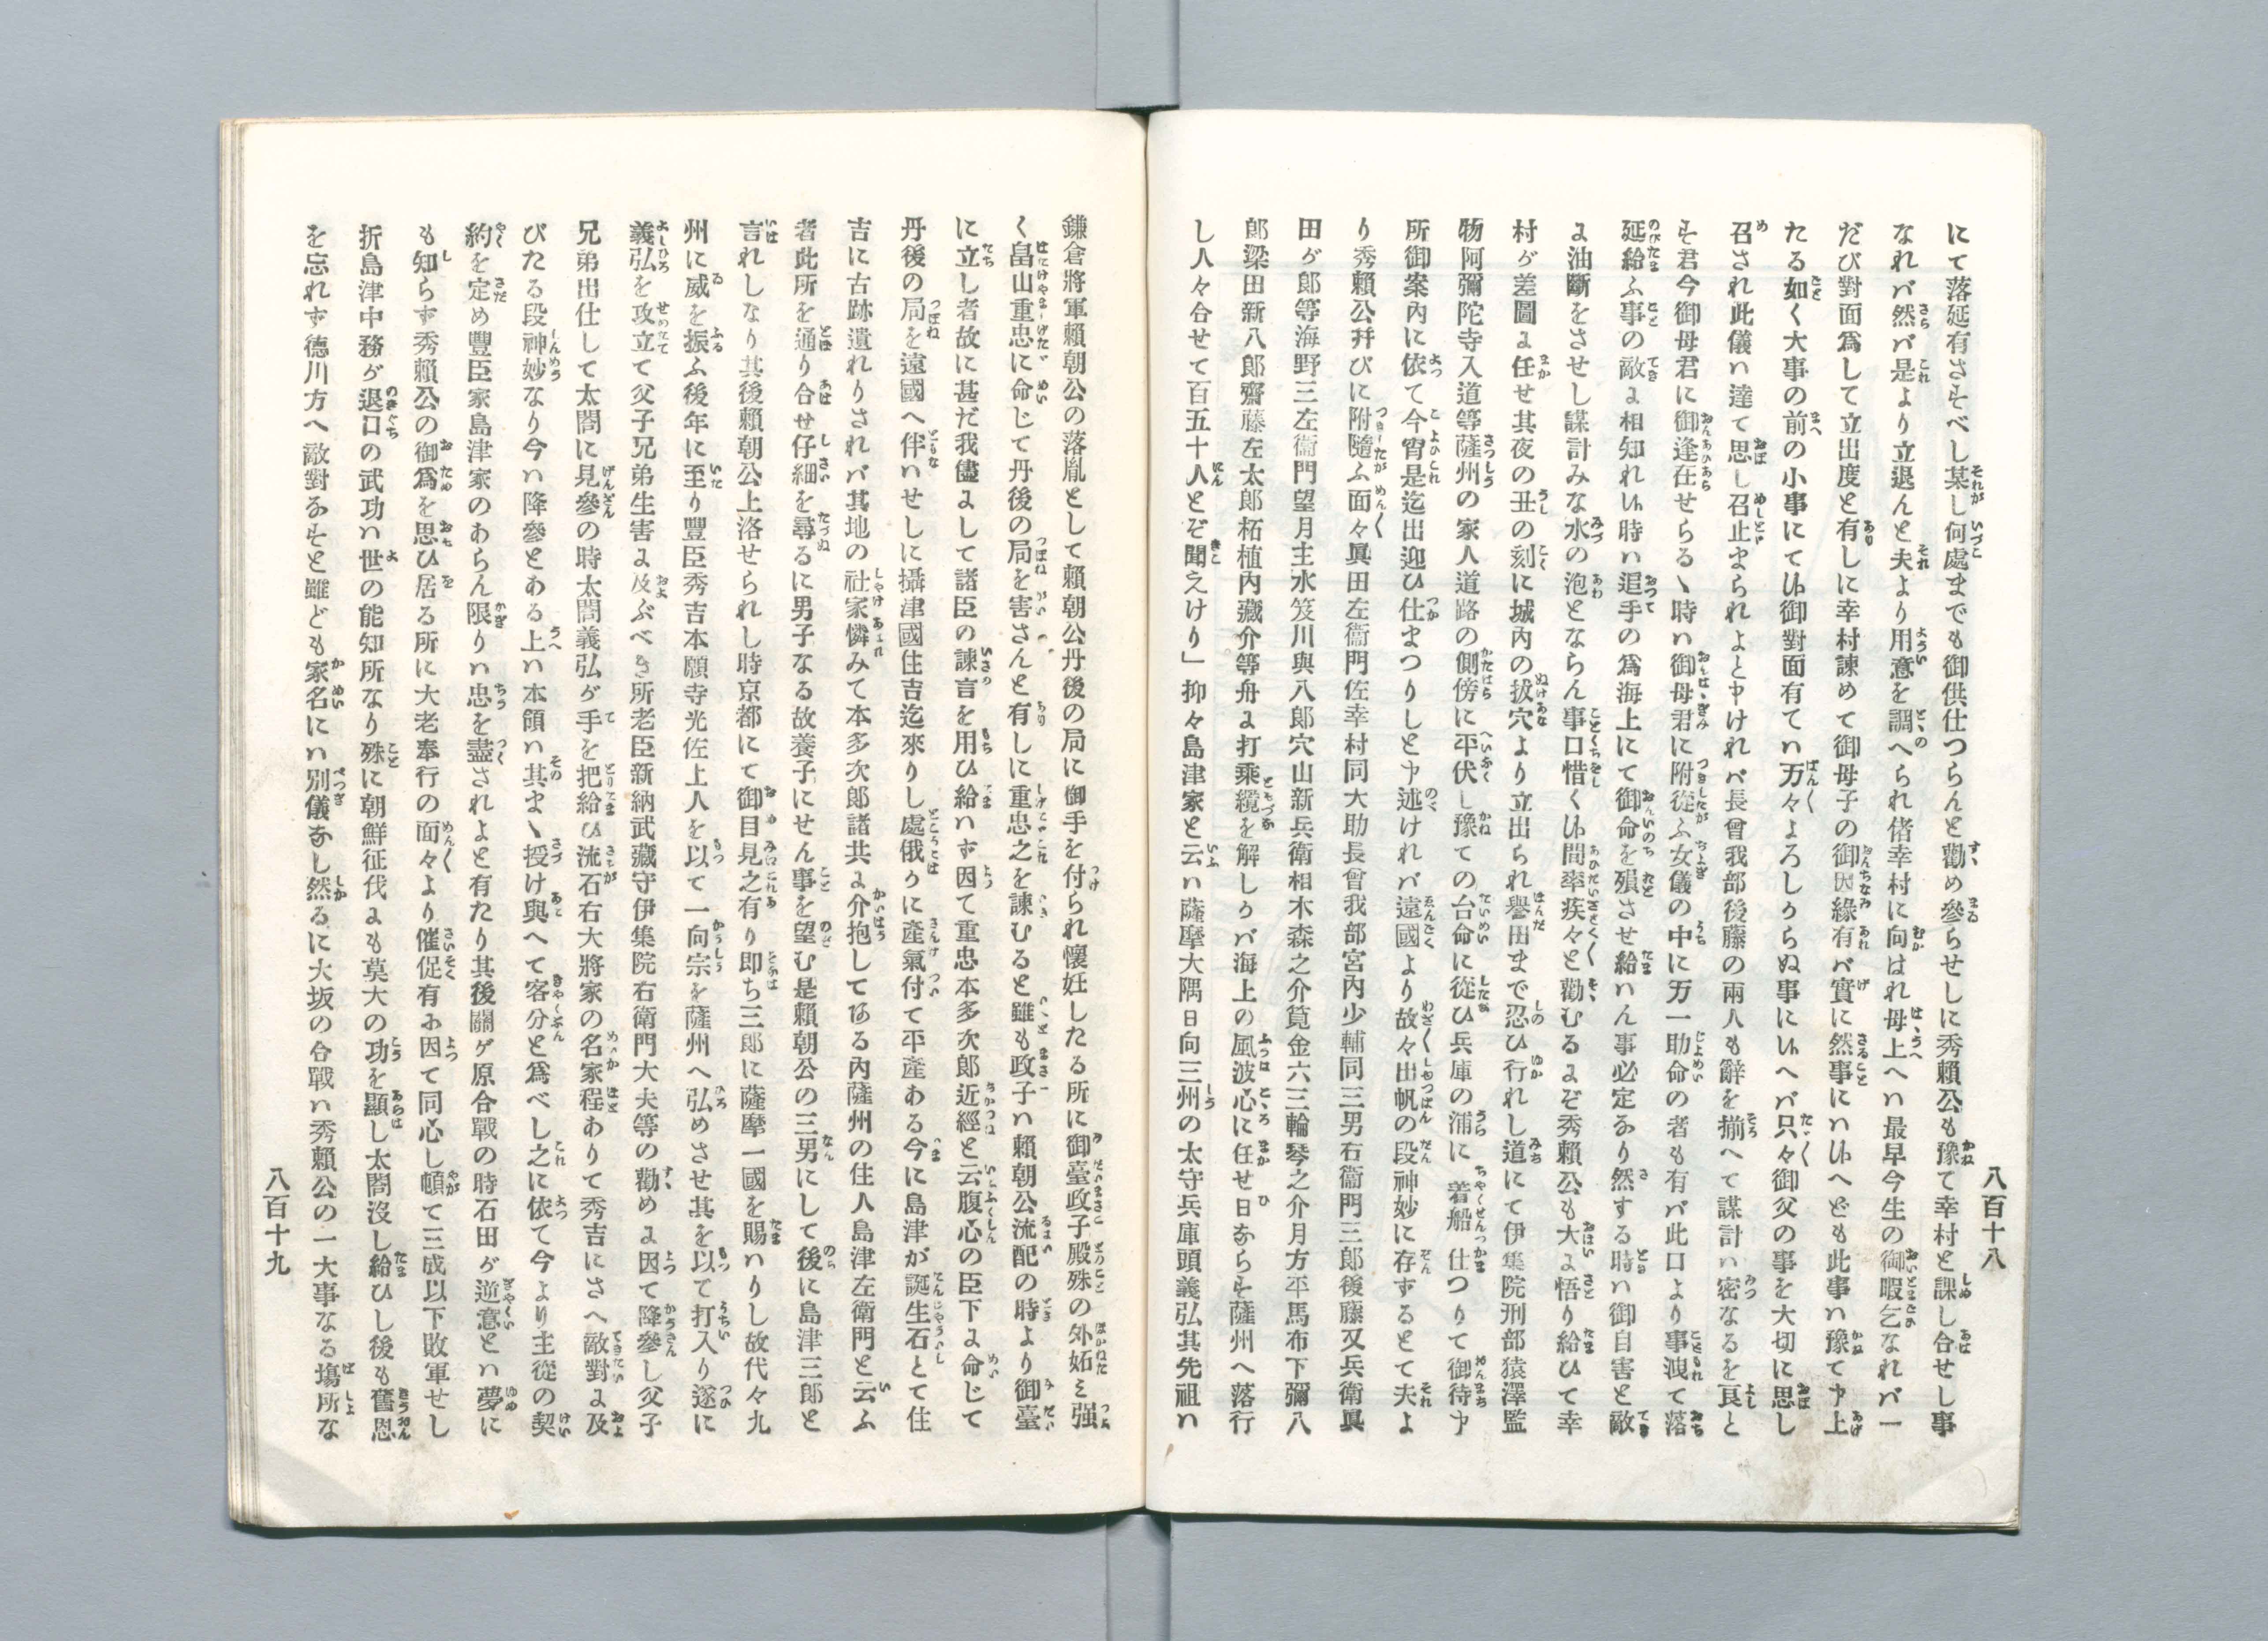 八百十八
にて落延有さすべし某し何處までも御供仕つらんと勸め參らせしに秀賴公も豫て幸村と課し合せし事
なれバ然バ是より立退んと夫より用意を調へられ偖幸村に向はれ母上へハ最早今生の御暇乞なれバ一
だび對面爲して立出度と有しに幸村諫めて御母子の御因緣有バ實に然事にハ𛀁へども此事ハ豫て申上
たる如く大事の前の小事にて御對面有てハ万々よろしからぬ事にへバ只々御父の事を大切に思し
召され此儀ハ達て思し召止まられよと申けれバ長曾我部後藤の兩人も辭を揃へて謀計ハ密なるを良と
す君今御母君に御逢在せらるゝ時ハ御母君に附從ふ女儀の中に万一助命の者も有バ此口より事洩て落
延給ふ事の敵に相知れ時ハ追手の爲海上にて御命を殞させ給ハん事必定なり然する時ハ御自害と敵
に油斷をさせし謀計みな水の泡とならん事口惜く間率疾々と勸むるにぞ秀賴公も大に悟り給ひて幸
村が差圖に任せ其夜の丑の刻に城內の拔穴より立出られ譽田まで忍び行れし道にて伊集院刑部猿澤監
物阿彌陀寺入道等薩州の家人道路の側傍に平伏し豫ての台命に從ひ兵庫の浦に着船仕つりて御待申
所御案內に依て今宵是迄出迎ひ仕まつりしと申述けれバ遠國より故々出帆の段神妙に存ずるとて夫よ
り秀賴公幷びに附隨ふ面々眞田左衞門佐幸村同大助長曾我部宮內少輔同三男右衞門三郎後藤又兵衛眞
田が郎等海野三左衞門望月主水笈川與八郎穴山新兵衛相木森之介筧金六三輪琴之介月方平馬布下彌八
郎梁田新八郎齋藤左太郎柘植內藏介等舟に打乘纜を解しかバ海上の風波心に任せ日ならず薩州へ落行
し人々合せて百五十人とぞ聞えけり」抑々島津家と云ハ薩摩大隅日向三州の太守兵庫頭義弘其先祖ハ
鎌倉將軍賴朝公の落胤として賴朝公丹後の局に御手を付られ懷妊したる所に御臺政子殿殊の外妬ミ强
く畠山重忠に命じて丹後の局を害さんと有しに重忠之を諫むると雖も政子ハ賴朝公流配の時より御臺
に立し者故に甚だ我儘にして諸臣の諫言を用ひ給ハず因て重忠本多次郎近經と云腹心の臣下に命じて
丹後の局を遠國へ伴ハせしに攝津國住吉迄來りし處俄かに產氣付て平產ある今に島津が誕生石とて住
吉に古跡遺れりされバ其地の社家憐みて本多次郎諸共に介抱してある內薩州の住人島津左衛門と云ふ
者此所を通り合せ仔細を尋るに男子なる故養子にせん事を望む是賴朝公の三男にして後に島津三郎と
言れしなり其後賴朝公上洛せられし時京都にて御目見之有り即ち三郎に薩摩一國を賜ハりし故代々九
州に威を振ふ後年に至り豐臣秀吉本願寺光佐上人を以て一向宗を薩州へ弘めさせ其を以て打入り遂に
義弘を攻立て父子兄弟生害に及ぶべき所老臣新納武藏守伊集院右衛門大夫等の勸めに因て降參し父子
兄弟出仕して太閤に見參の時太閤義弘が手を把給ひ流石右大將家の名家程ありて秀吉にさへ敵對に及
びたる段神妙なり今ハ降參とある上ハ本領ハ其まゝ授け與へて客分と爲べし之に依て今より主從の契
約を定め豐臣家島津家のあらん限りハ忠を盡されよと有たり其後關ヶ原合戰の時石田が逆意とハ夢に
も知らず秀賴公の御爲を思ひ居る所に大老奉行の面々より催促有ゆ因て同心し頓て三成以下敗軍せし
折島津中務が退口の武功ハ世の能知所なり殊に朝鮮征伐にも莫大の功を顯し太閤沒し給ひし後も舊恩
を忘れず德川方へ敵對なすと雖ども家名にハ別儀なし然るに大坂の合戰ハ秀賴公の一大事なる塲所な
八百十九